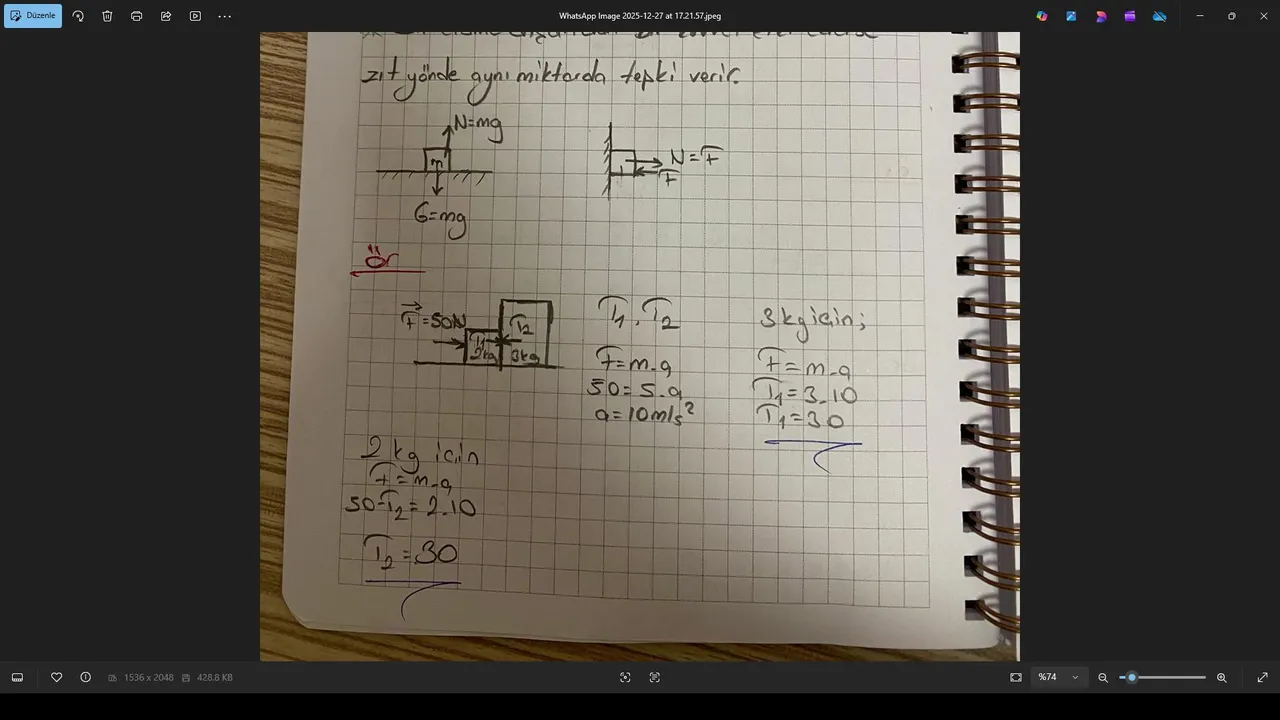 Düzenle
WhatsApp Image 2025-12-27 at 17.21.57.jpeg
zıt yönde aynı miktarda tepki verir.
N=mg
m
G=mg
N=F
F
Ör
F=50N
T1
2kg
T2
3kg
T1, T2
F=m.a
50=5.a
a=10m/s²
3kg için;
F=m.a
T1=3.10
T1=30
2kg için
F=m.a
50-T2=2.10
T2=30
1536 x 2048
428.8 KB
%74